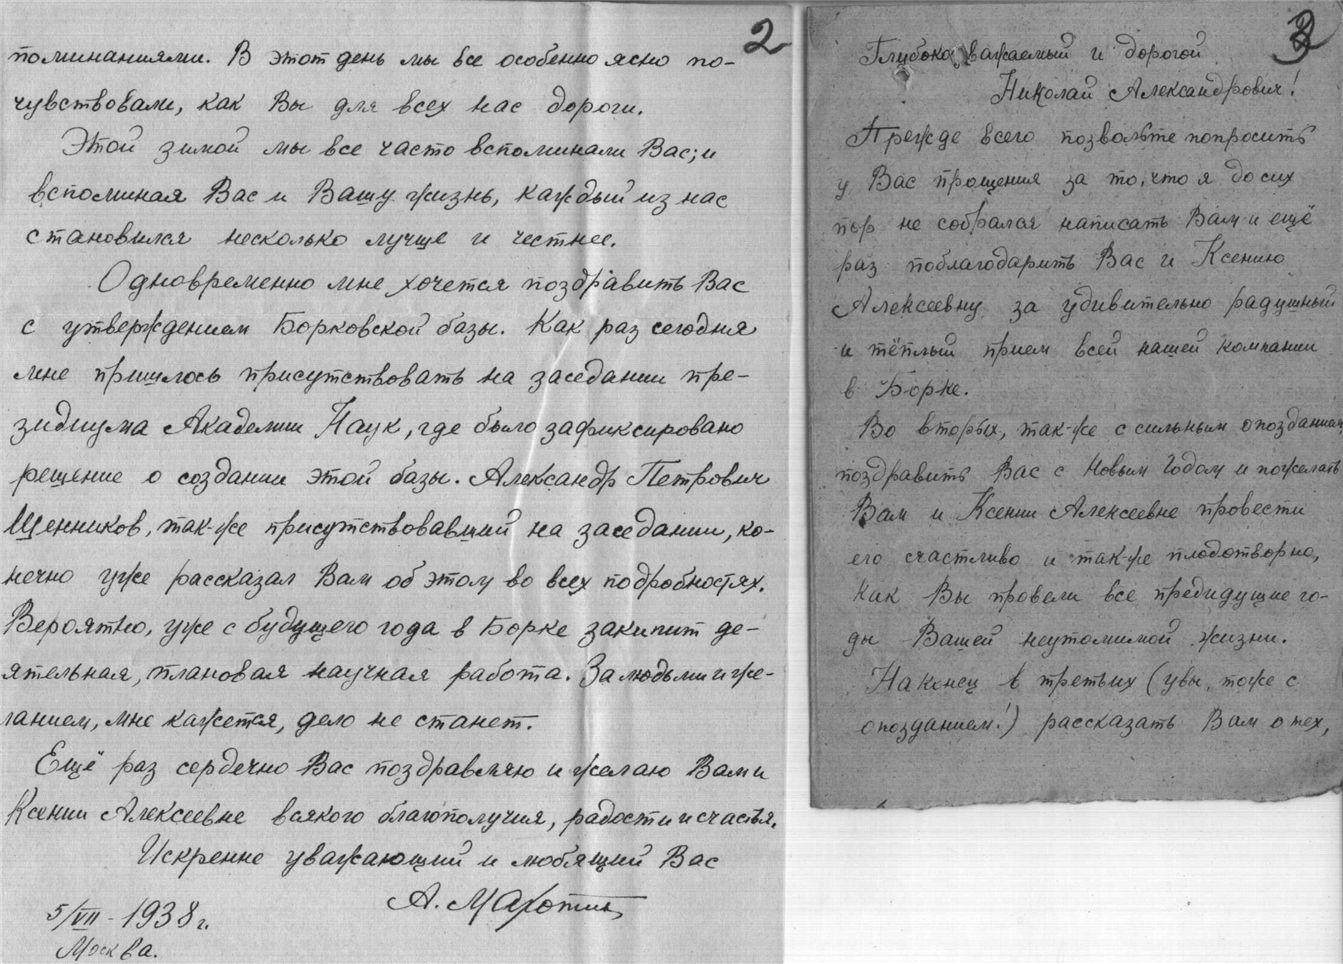 2
поминаниями. В этот день мы все особенно ясно по-
чувствовали, как Вы для всех нас дороги.
Этой зимой мы все часто вспоминали Вас; и
вспоминая Вас и Вашу жизнь, каждый из нас
становился несколько лучше и честнее.
Одновременно мне хочется поздравить Вас
с утверждением Борковской базы. Как раз сегодня
мне пришлось присутствовать на заседании пре-
зидиума Академии Наук, где было зафиксировано
решение о создании этой базы. Александр Петрович
Щенников, так-же присутствовавший на заседании, ко-
нечно уже рассказал Вам об этом во всех подробностях.
Вероятно, уже с будущего года в Борке закипит де-
ятельная, плановая научная работа. За людьми и же-
ланием, мне кажется, дело не станет.
Ещё раз сердечно Вас поздравляю и желаю Вам и
Ксении Алексеевне всякого благополучия, радости и счастья.
Искренне уважающий и любящий Вас
А. Махотин
5/VII - 1938 г.
Москва.
3
Глубокоуважаемый и дорогой
Николай Александрович!
Прежде всего позвольте попросить
у Вас прощения за то, что я до сих
пор не собрался написать Вам и ещё
раз поблагодарить Вас и Ксению
Алексеевну за удивительно радушный
и тёплый прием всей нашей компании
в Борке.
Во вторых, так-же с сильным опозданием,
поздравить Вас с Новым Годом и пожелать
Вам и Ксении Алексеевне провести
его счастливо и так-же плодотворно,
как Вы провели все предидущие го-
ды Вашей неутомимой жизни.
Наконец в третьих (увы, тоже с
опозданием!) рассказать Вам о тех,